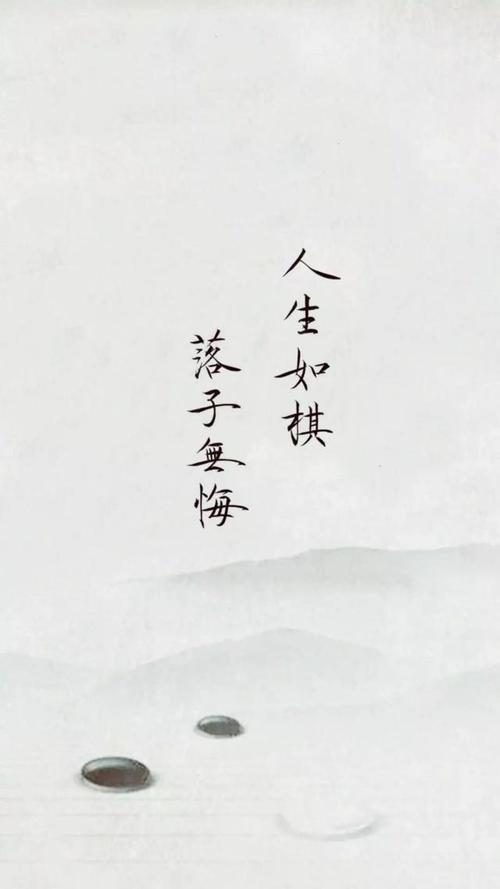 人生如棋
落子無悔